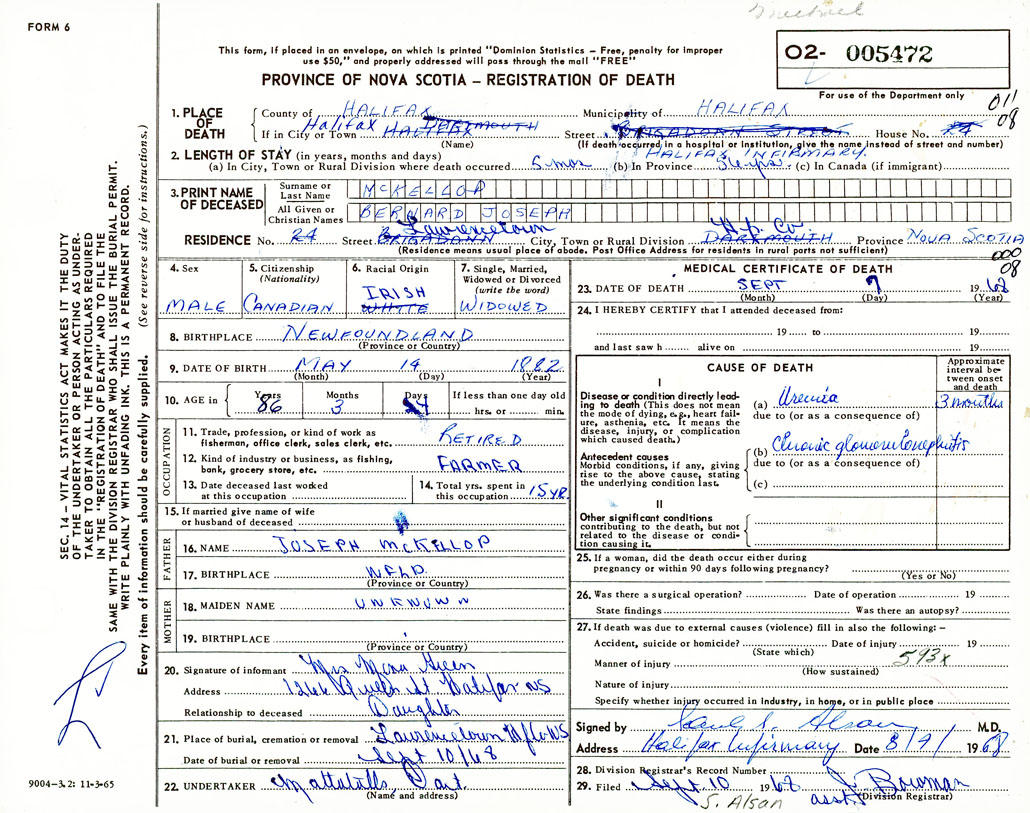 FORM 6
This form, if placed in an envelope, on which is printed "Dominion Statistics – Free, penalty for improper
use $50," and properly addressed will pass through the mail "FREE"
PROVINCE OF NOVA SCOTIA – REGISTRATION OF DEATH
02- 005472
For use of the Department only
011
08
1. PLACE OF DEATH
County of HALIFAX Municipality of HALIFAX
If in City or Town Halifax HALIFAX DARTMOUTH Street BRIGADOON STREET House No. 24
(Name) (If death occurred in a hospital or institution, give the name instead of street and number)
HALIFAX INFIRMARY.
2. LENGTH OF STAY (in years, months and days)
(a) In City, Town or Rural Division where death occurred 5 mos (b) In Province (c) In Canada (if immigrant)
3. PRINT NAME OF DECEASED
Surname or Last Name MCKELLOP
All Given or Christian Names BERNARD JOSEPH
Lawrencetown Hfx Co.
RESIDENCE No. 24 Street BRIGADOON City, Town or Rural Division DARTMOUTH Province NOVA SCOTIA
(Residence means usual place of abode. Post Office Address for residents in rural parts not sufficient)
000
08
4. Sex MALE
5. Citizenship (Nationality) CANADIAN
6. Racial Origin IRISH WHITE
7. Single, Married, Widowed or Divorced (write the word) WIDOWED
8. BIRTHPLACE NEWFOUNDLAND
(Province or Country)
9. DATE OF BIRTH MAY 14 1882
(Month) (Day) (Year)
10. AGE in Years 86 Months 3 Days 24 If less than one day old hrs. or min.
OCCUPATION
11. Trade, profession, or kind of work as fisherman, office clerk, sales clerk, etc. RETIRED
12. Kind of industry or business, as fishing, bank, grocery store, etc. FARMER
13. Date deceased last worked at this occupation
14. Total yrs. spent in this occupation 15 YR.
15. If married give name of wife or husband of deceased
FATHER
16. NAME JOSEPH McKELLOP
17. BIRTHPLACE NFLD.
(Province or Country)
MOTHER
18. MAIDEN NAME UNKNOWN
19. BIRTHPLACE
(Province or Country)
20. Signature of informant Mrs Green
Address 1266 Queen St. Halifax NS
Relationship to deceased Daughter
21. Place of burial, cremation or removal Lawrencetown Hfx Co NS
Date of burial or removal Sept 10/68
22. UNDERTAKER Mattatalls, Dart.
(Name and address)
MEDICAL CERTIFICATE OF DEATH
23. DATE OF DEATH SEPT 7 1968
(Month) (Day) (Year)
24. I HEREBY CERTIFY that I attended deceased from:
19 to 19
and last saw h alive on 19
CAUSE OF DEATH
Approximate interval between onset and death
I
Disease or condition directly leading to death (This does not mean the mode of dying, e.g., heart failure, asthenia, etc. It means the disease, injury, or complication which caused death.)
(a) Uremia 3 months
due to (or as a consequence of)
Antecedent causes
Morbid conditions, if any, giving rise to the above cause, stating the underlying condition last.
(b) Chronic glomerulonephritis
due to (or as a consequence of)
(c)
II
Other significant conditions
contributing to the death, but not related to the disease or condition causing it.
25. If a woman, did the death occur either during pregnancy or within 90 days following pregnancy?
(Yes or No)
26. Was there a surgical operation? Date of operation 19
State findings Was there an autopsy?
27. If death was due to external causes (violence) fill in also the following: –
Accident, suicide or homicide? Date of injury 19
(State which)
Manner of injury 593x
(How sustained)
Nature of injury
Specify whether injury occurred in Industry, in home, or in public place
Signed by M.D.
Address Halifax Infirmary Date 8/9/ 1968
28. Division Registrar's Record Number
29. Filed Sept 10 1968 J. Bowman
asst. (Division Registrar)
S. Alsan
SEC. 14 – VITAL STATISTICS ACT MAKES IT THE DUTY
OF THE UNDERTAKER OR PERSON ACTING AS UNDER-
TAKER TO OBTAIN ALL THE PARTICULARS REQUIRED
IN THE "REGISTRATION OF DEATH" AND TO FILE THE
SAME WITH THE DIVISION REGISTRAR WHO SHALL ISSUE THE BURIAL PERMIT.
WRITE PLAINLY WITH UNFADING INK. THIS IS A PERMANENT RECORD.
Every item of information should be carefully supplied. (See reverse side for instructions.)
9004–3.2: 11-3-65